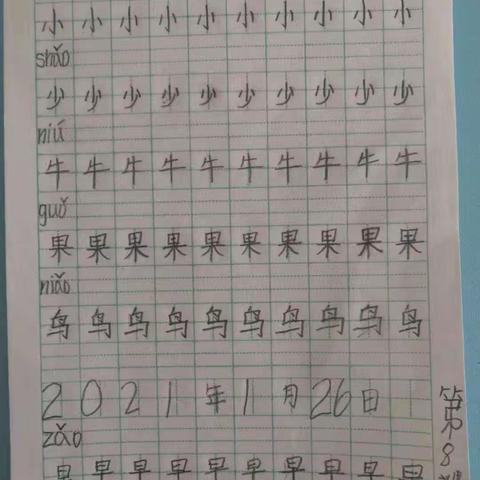 小小小小小小小小小小
shǎo
少少少少少少少少少少
niú
牛牛牛牛牛牛牛牛牛牛
guǒ
果果果果果果果果果果
niǎo
鸟鸟鸟鸟鸟鸟鸟鸟鸟鸟
2021年1月26日
zǎo
早早早早早早早早早早
第8